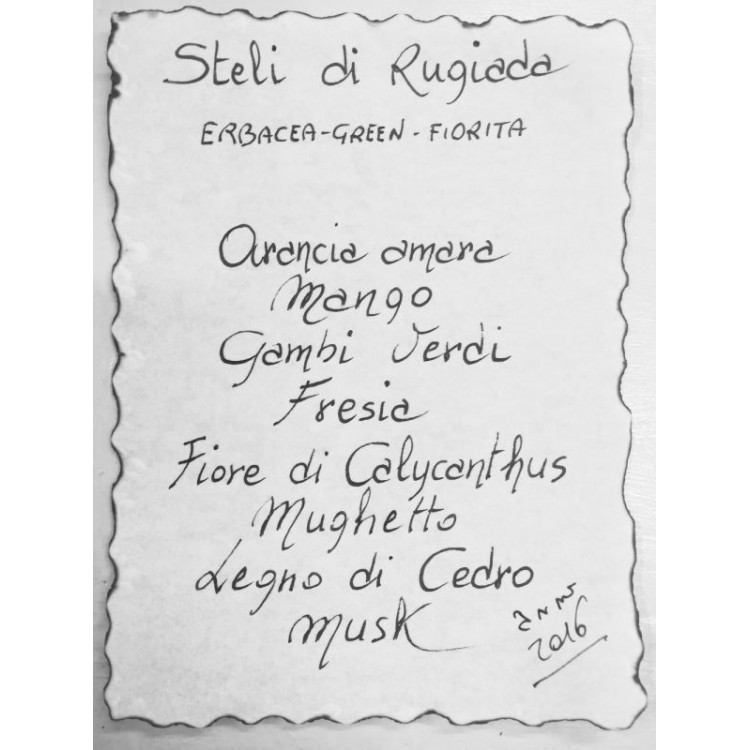 Steli di Rugiada
ERBACEA-GREEN-FIORITA
Arancia amara
Mango
Gambi Verdi
Fresia
Fiore di Calycanthus
Mughetto
Legno di Cedro
Musk
2016